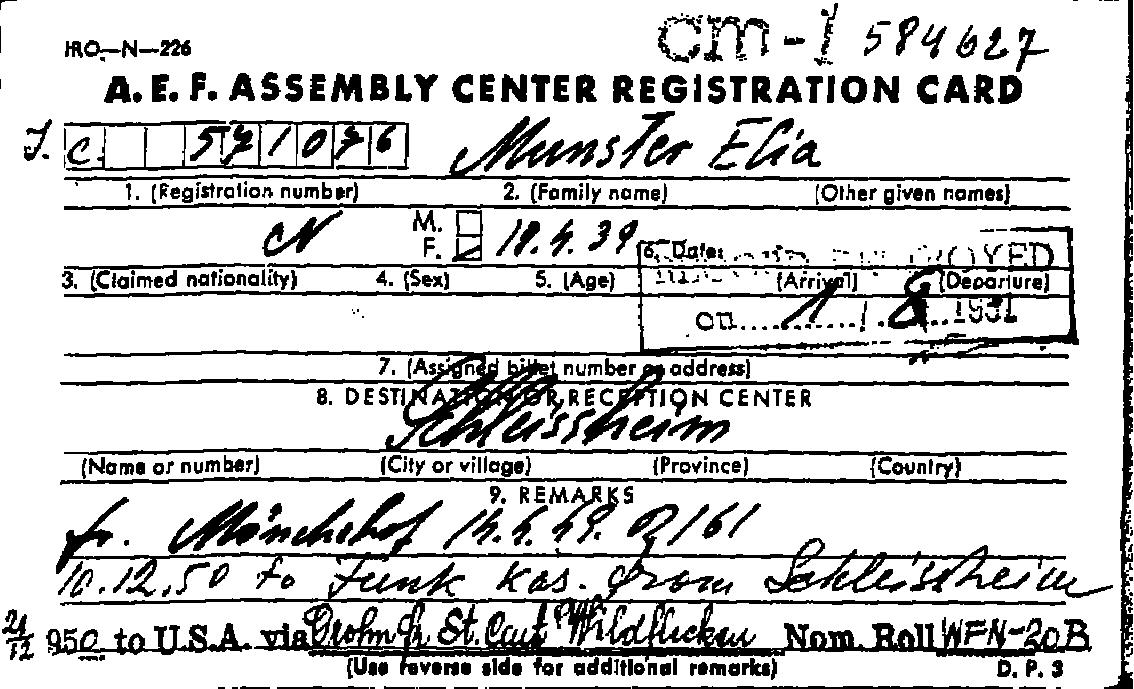 IRO-N-226
cm-1 584627
A. E. F. ASSEMBLY CENTER REGISTRATION CARD
J. C. 571076 Munster Elia
1. (Registration number) 2. (Family name) (Other given names)
N M. F. 4. 39 6. Date: OYED
3. (Claimed nationality) 4. (Sex) 5. (Age) (Arrival) (Departure)
on 1 8 1951
7. (Assigned billet number or address)
8. DESTINATION OR RECEPTION CENTER
Schleissheim
(Name or number) (City or village) (Province) (Country)
9. REMARKS
fr. Mönchshof 14.4.49. 161
10.12.50 to Funk Kas. from Schleissheim
21/12 950 to U.S.A. via Wildflecken Nom. Roll WFN-20B
(Use reverse side for additional remarks) D. P. 3